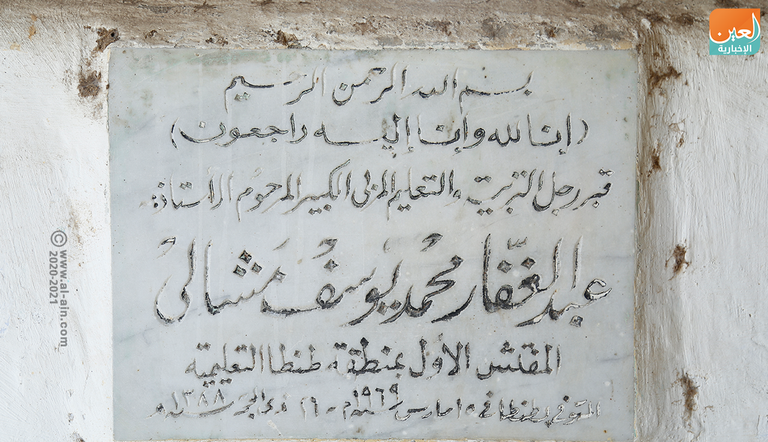 العين
الإخبارية
بسم الله الرحمن الرحيم
(إنا لله وإنا إليه راجعون)
قبر رجل التربية والتعليم المربي الكبير المرحوم الأستاذ:
عبد الغفار محمد يوسف مشالى
المفتش الأول بمنطقة طنطا التعليمية
المتوفى بطنطا فى ١٥ مارس سنة ١٩٦٩م - ذو الحجة سنة ١٣٨٨ هـ
© www.al-ain.com
2020-2021